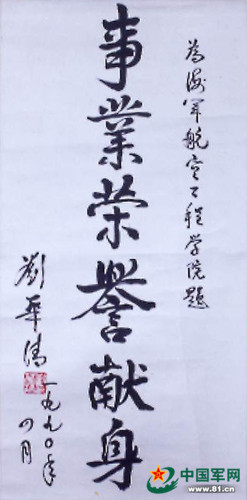 為海軍航空工程学院题
事業荣譽献身
劉華清
一九九〇年
四月
中国军网
www.81.cn